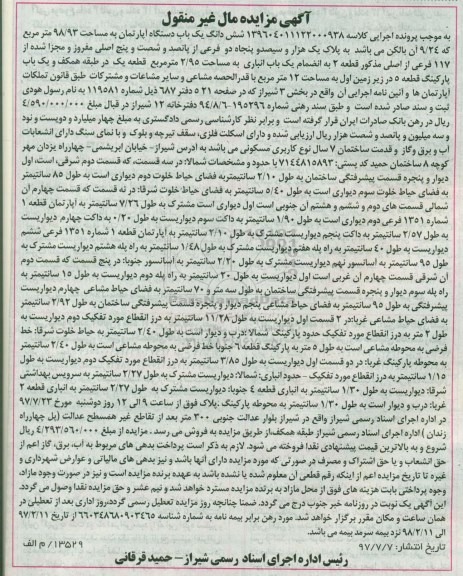 آگهی مزایده مال غیر منقول
به موجب پرونده اجرایی کلاسه ۱۳۹۶۰۴۰۱۱۱۲۲۰۰۰۹۳۸ شش دانگ یک باب دستگاه آپارتمان به مساحت ۹۸/۹۳ متر مربع
که ۹/۲۴ آن بالکن می باشد به پلاک یک هزار و سیصدو پنجاه دو فرعی از پانصد و شصت و پنج اصلی مفروز و مجزا شده از
۱۱۷ فرعی از اصلی مذکور قطعه ۲ به انضمام یک باب انباری به مساحت ۲/۹۵ مترمربع قطعه یک در طبقه همکف و یک باب
پارکینگ قطعه ۵ در زیر زمین اول به مساحت ۱۲ متر مربع با قدرالحصه مشاعی و سایر مشاعات و مشترکات طبق قانون تملکات
آپارتمان ها و آئین نامه اجرایی آن واقع در بخش ۳ شیراز که در صفحه ۲۱ دفتر ۶۸۷ ذیل شماره ۱۱۹۵۸۱ به نام رسول هودی
ثبت و سند صادر شده است و طبق سند رهنی شماره ۱۹۵۲۹۶-۹۴/۸/۶ دفترخانه ۱۲ شیراز در قبال مبلغ ۴/۵۹۰/۰۰۰/۰۰۰
ریال در رهن بانک صادرات ایران قرار گرفته است و برابر نظر کارشناسی رسمی دادگستری به مبلغ چهار میلیارد و دویست و نود
و سه میلیون و پانصد و شصت هزار ریال ارزیابی شده و دارای اسکلت فلزی، سقف تیرچه و بلوک و با نمای سنگ دارای انشعابات
آب و برق وگاز و قدمت ساختمان ۷ سال نوع کاربری مسکونی می باشد به آدرس شیراز- خیابان ابریشمی- چهارراه یزدان مهر
کوچه ۸ ساختمان حمید کد پستی: ۷۱۴۴۸۱۵۸۹۳ با حدود و مشخصات شمالا: در سه قسمت، که قسمت دوم شرقی، است، اول
دیوار و پنجره قسمت پیشرفتگی ساختمان به طول ۲/۱۰ سانتیمتربه فضای حیاط خلوت دوم دیواری است به طول ۸۵ سانتیمتر
به فضای حیاط خلوت سوم دیواری است به طول ۵/۴۰ سانتیمتر به فضای حیاط خلوت شرقا: در نه قسمت که قسمت چهارم آن
شمالی قسمت های دوم و ششم و هشتم آن جنوبی است اول دیواری است مشترک به طول ۷/۲۶ سانتیمتر به آپارتمان قطعه ۱
شماره ۱۳۵۱ فرعی دوم دیواری است به طول ۱/۹۰ سانتیمتر به داکت سوم دیواریست به طول ۰/۲۰ به داکت چهارم دیواریست
به طول ۲/۵۷ سانتیمتر به داکت پنجم دیواریست مشترک به طول ۲/۱۰ سانتیمتر به آپارتمان قطعه ۱ شماره ۱۳۵۱ فرعی ششم
دیواریست به طول ۴۰ سانتیمتر به راه پله هفتم دیواریست مشترک به طول ۱/۴۸ سانتیمتر به راه پله هشتم دیواریست مشترک به
طول ۹۵ سانتیمتر به آسانسور نهم دیواریست مشترک به طول ۲/۲۰ سانتیمتر به آسانسور جنوبا: در پنج قسمت که قسمت دوم
آن شرقی قسمت چهارم آن غربی است اول دیواریست به طول ۳۰ سانتیمتر به راه پله دوم دیواریست به طول ۱۵ سانتیمتر به
راه پله سوم دیوار و پنجره قسمت پیشرفتگی ساختمان به طول سه متر و ۷۰ سانتیمتر به فضای حیاط مشاعی چهارم دیواریست
پیشرفتگی به طول ۹۵ سانتیمتر به فضای حیاط مشاعی پنجم دیوار و پنجره قسمت پیشرفتگی ساختمان به طول ۲/۹۲ سانتیمتر
به فضای حیاط مشاعی غربا:در ۲ قسمت اول دیواریست به طول ۱۱/۲۸ سانتیمتر به درز انقطاع مورد تفکیک دوم دیواریست به
طول ۳ متر به درز انقطاع مورد تفکیک حدود پارکینگ شمالا :درب و دیوار است به طول ۲/۴۰ سانتیمتر به حیاط خلوت شرقا: خط
فرضی به محوطه مشاعی است به طول ۵ متر به پارکینگ قطعه ۶ جنوبا خط فرضی به محوطه مشاعی است به طول ۲/۴۰ سانتیمتر
به محوطه پارکینگ غربا: در دو قسمت اول دیواریست به طول ۳/۸۵ سانتیمتر به درز انقطاع مورد تفکیک دوم دیواریست به طول
۱/۱۵ سانتیمتر به درز انقطاع مورد تفکیک - حدود انباری: شمالا: دیواریست مشترک به طول ۲/۲۷ سانتیمتر به سرویس بهداشتی
شرقا: دیواریست به طول ۱/۳۰ سانتیمتر به انباری قطعه ۴ جنوبا: دیواریست مشترک به طول ۲/۲۷ سانتیمتر به انباری قطعه ۲
غربا: درب و دیوار است به طول ۱/۳۰ سانتیمتر به محوطه پارکینگ .پلاک فوق از ساعت ۹ الی ۱۲ روز دوشنبه مورخ ۹۷/۷/۲۳
در اداره اجرای اسناد رسمی شیراز واقع در شیراز بلوار عدالت جنوبی ۳۰۰ متر بعد از تقاطع غیر همسطح عدالت (پل چهارراه
زندان ) اداره اجرای اسناد رسمی شیراز طبقه همکف،از طریق مزایده به فروش می رسد . مزایده از مبلغ ۴/۲۹۳/۵۶۰/۰۰۰ ریال
شروع و به بالاترین قیمت پیشنهادی نقدا فروخته می شود. لازم به ذکر است پرداخت بدهی های مربوط به آب، برق، گاز اعم از
حق انشعاب و یا حق اشتراک و مصرف در صورتی که مورد مزایده دارای آنها باشد و نیز بدهی های مالیاتی و عوارض شهرداری و
غیره تا تاریخ مزایده اعم از اینکه رقم قطعی آن معلوم شده یا نشده باشد به عهده برنده مزایده است و نیز در صورت وجود مازاد،
وجوه پرداختی بابت هزینه های فوق از محل مازاد به برنده مزایده مسترد خواهد شد و نیم عشر و حق مزایده نقدا وصول می گردد.
این آگهی یک نوبت در روزنامه خبر جنوب درج می گردد. ضمنا چنانچه روز مزایده تعطیل رسمی گردد،روز اداری بعد از تعطیلی در
همان ساعت و مکان مقرر برگزار خواهد شد. مورد رهن برابر بیمه نامه به شماره شناسه ۶۶۰۳۴۸۶۸۰۹۰۳۴۶۵ از تاریخ ۹۷/۲/۱۱
الی ۹۸/۲/۱۱ نزد بیمه سرمد بیمه می باشد.
تاریخ انتشار: ۹۷/۷/۷
۱۳۵۲۹/ م الف
رئیس اداره اجرای اسناد رسمی شیراز- حمید قرقانی